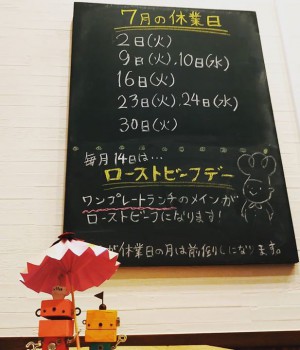 7月の休業日
2日(火)
9日(火).10日(水)
16日(火)
23日(火).24日(水)
30日(火)
毎月14日は…
ローストビーフデー
ワンプレートランチのメインが
ローストビーフになります!
が休業日の月は前倒しになります。